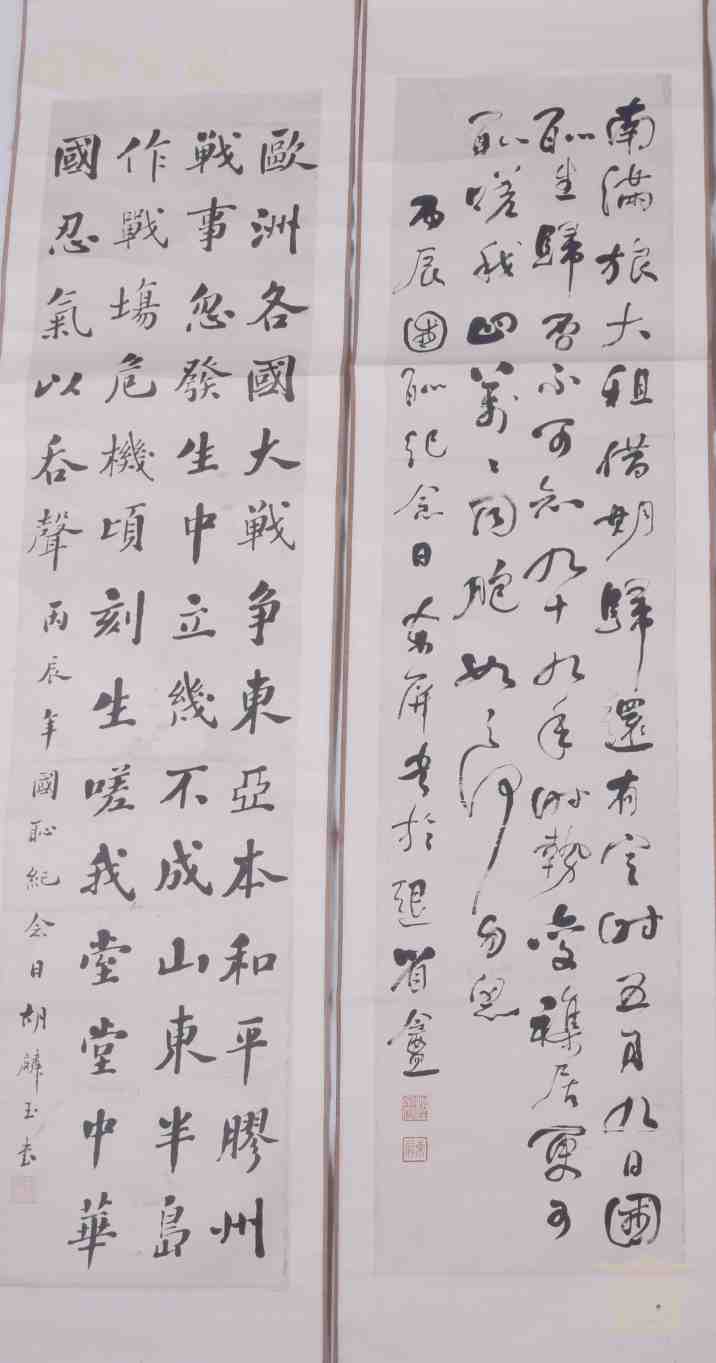 南滿旅大租借期歸還有定時五月九日國
耻生歸否不可知九十九年時勢變居更可
耻嗟我四萬〻同胞如之何勿思
丙辰國耻紀念日東屏書於退省盦
歐洲各國大戦争東亞本和平膠州
戦事忽發生中立幾不成山東半島
作戰塲危機頃刻生嗟我堂堂中華
國忍氣以吞聲丙辰年國恥紀念日胡麟玉書